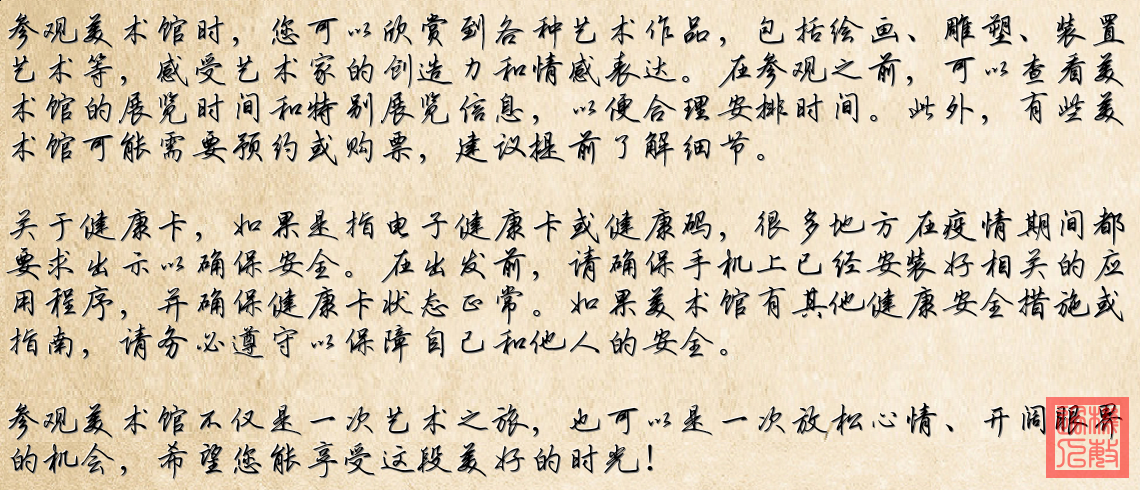 参观美术馆时，您可以欣赏到各种艺术作品，包括绘画、雕塑、装置
艺术等，感受艺术家的创造力和情感表达。在参观之前，可以查看美
术馆的展览时间和特别展览信息，以便合理安排时间。此外，有些美
术馆可能需要预约或购票，建议提前了解细节。
关于健康卡，如果是指电子健康卡或健康码，很多地方在疫情期间都
要求出示以确保安全。在出发前，请确保手机上已经安装好相关的应
用程序，并确保健康卡状态正常。如果美术馆有其他健康安全措施或
指南，请务必遵守以保障自己和他人的安全。
参观美术馆不仅是一次艺术之旅，也可以是一次放松心情、开阔眼界
的机会，希望您能享受这段美好的时光！